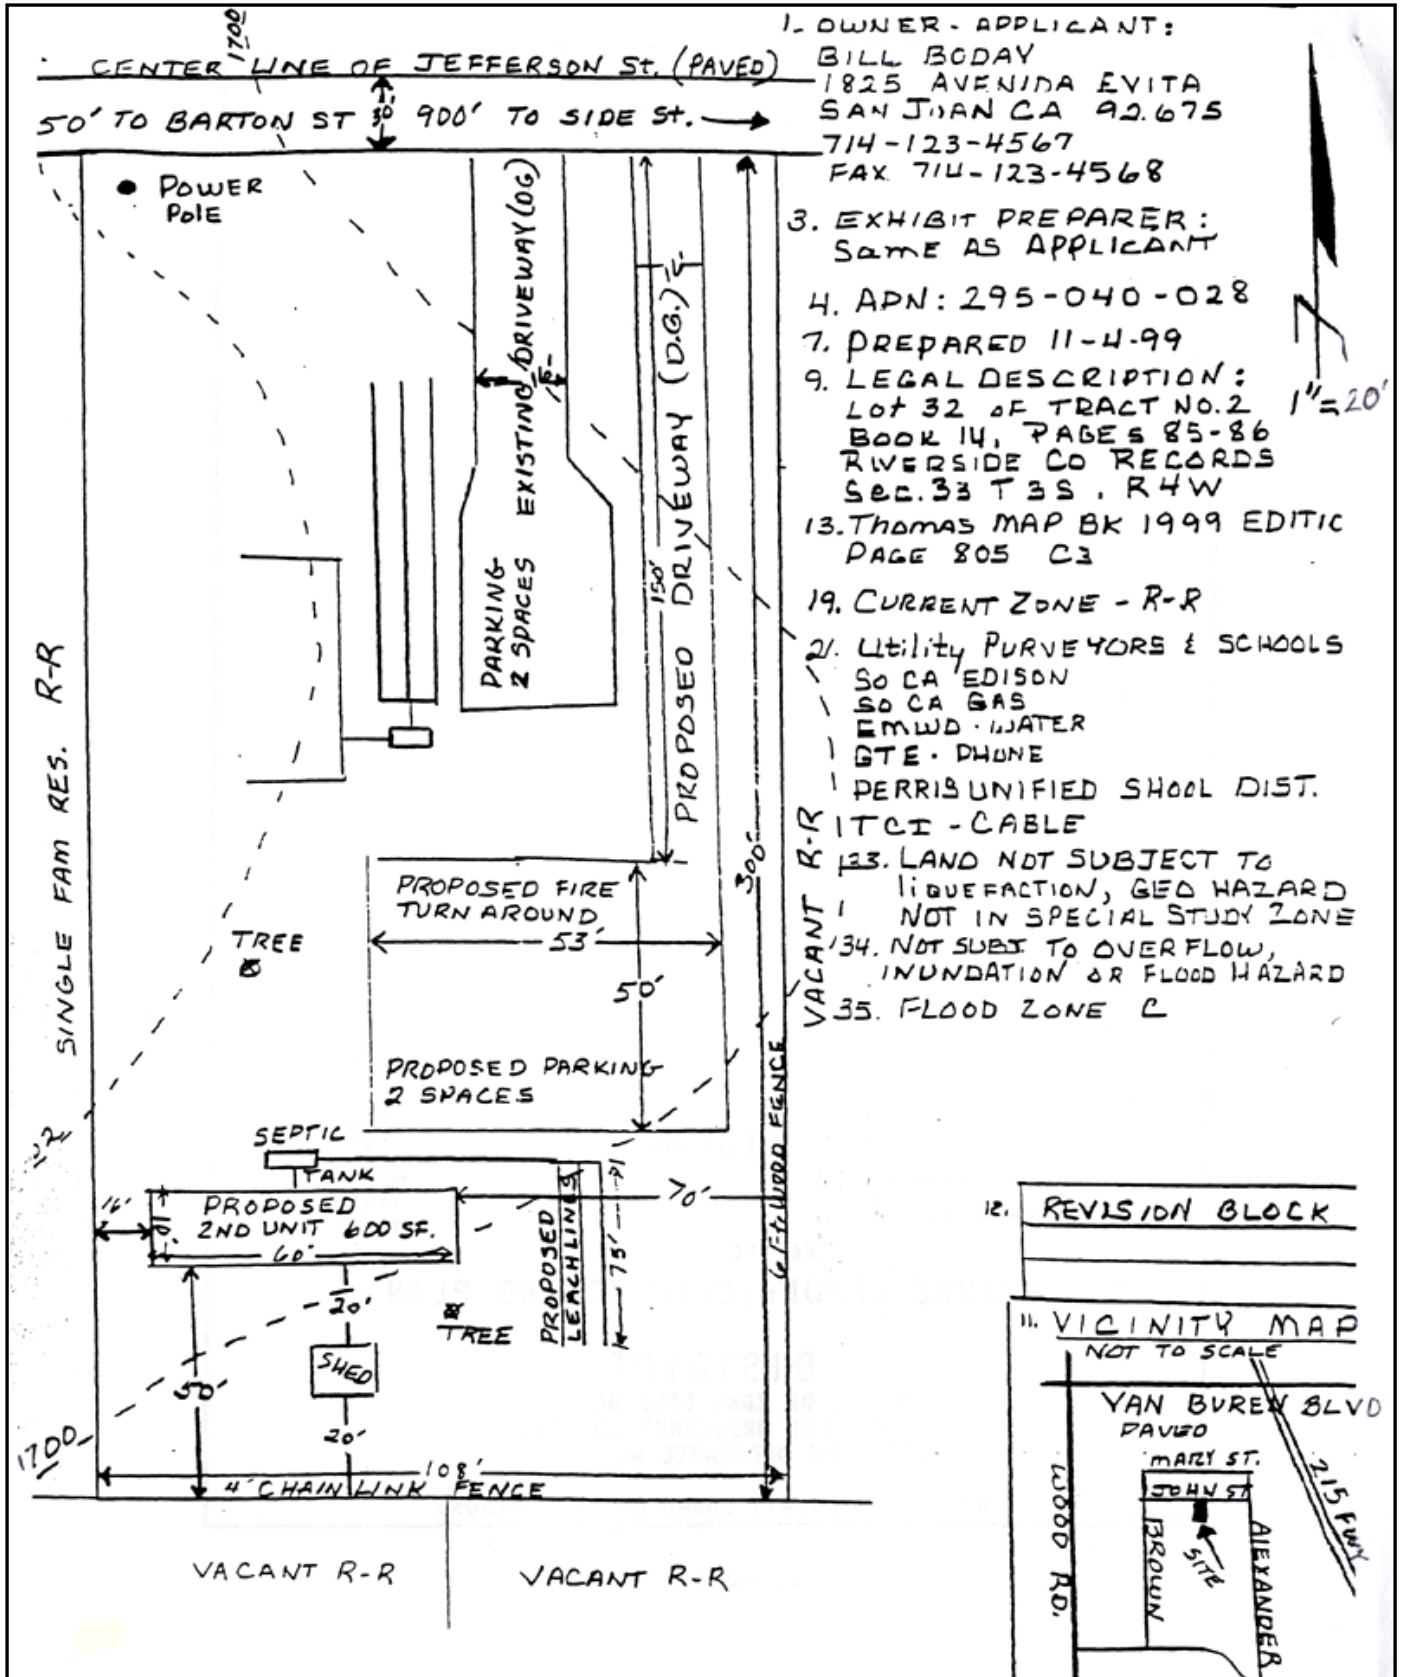 1700
CENTER LINE OF JEFFERSON St. (PAVED)
30'
50' TO BARTON ST
900' TO SIDE St.
POWER
PolE
EXISTING DRIVEWAY (DG)
PARKING
2 SPACES
PROPOSED DRIVEWAY (D.G.)
150'
300'
SINGLE FAM RES. R-R
VACANT R-R
PROPOSED FIRE
TURN AROUND
53'
50'
TREE
PROPOSED PARKING
2 SPACES
6 Ft. WOOD FENCE
SEPTIC
TANK
16'
PROPOSED
2ND UNIT 600 SF.
10'
60'
70'
PROPOSED
LEACHLINES
75'
20'
TREE
SHED
50'
20'
1700
108'
4' CHAIN LINK FENCE
VACANT R-R
VACANT R-R
1. OWNER - APPLICANT:
BILL BODAY
1825 AVENIDA EVITA
SAN JUAN CA 92.675
714-123-4567
FAX 714-123-4568
3. EXHIBIT PREPARER:
SamE AS APPLICANT
4. APN: 295-040-028
7. PREPARED 11-4-99
9. LEGAL DESCRIPTION:
Lot 32 oF TRACT NO.2
BOOK 14, PAGES 85-86
RIVERSIDE CO RECORDS
Sec. 33 T 3S, R4W
13. Thomas MAP BK 1999 EDITIC
PAGE 805 C3
19. CURRENT ZONE - R-R
21. Utility PURVEYORS & SCHOOLS
So CA EDISON
SO CA GAS
EMWD · WATER
GTE · PHONE
PERRIS UNIFIED SHOOL DIST.
TCI - CABLE
33. LAND NOT SUBJECT TO
liQUEFACTION, GEO HAZARD
NOT IN SPECIAL STUDY ZONE
34. NOT SUBJ. TO OVERFLOW,
INUNDATION OR FLOOD HAZARD
35. FLOOD ZONE C
N
1"=20'
12. REVISION BLOCK
11. VICINITY MAP
NOT TO SCALE
VAN BUREN BLVD
PAVED
MARY ST.
JOHN ST
WOOD RD.
BROWN
SITE
AlEXANDER
215 FWY